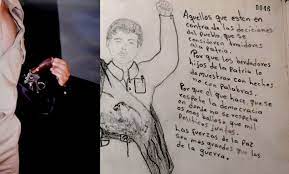 0046
Aquellos que esten en
contra de las decisiones
del pueblo, que se
consideren traidores
a la patria.
Por que los berdaderos
hijos de la Patria lo
demuestran con hechos
no con palabras.
Por que el que hace, que se
respete la democracia
en donde no se respeta
es mas balioso que mil
Politicos juntos.
Las fuerzas de la Paz
son mas grandes que las
de la guerra.